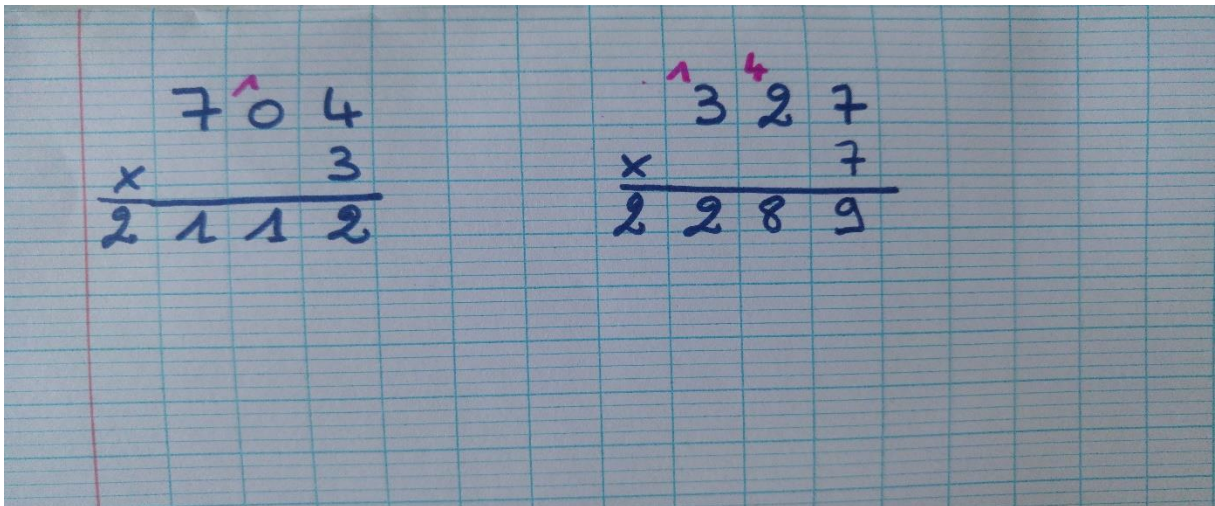 1
7 0 4
x 3
2 1 1 2
1 4
3 2 7
x 7
2 2 8 9